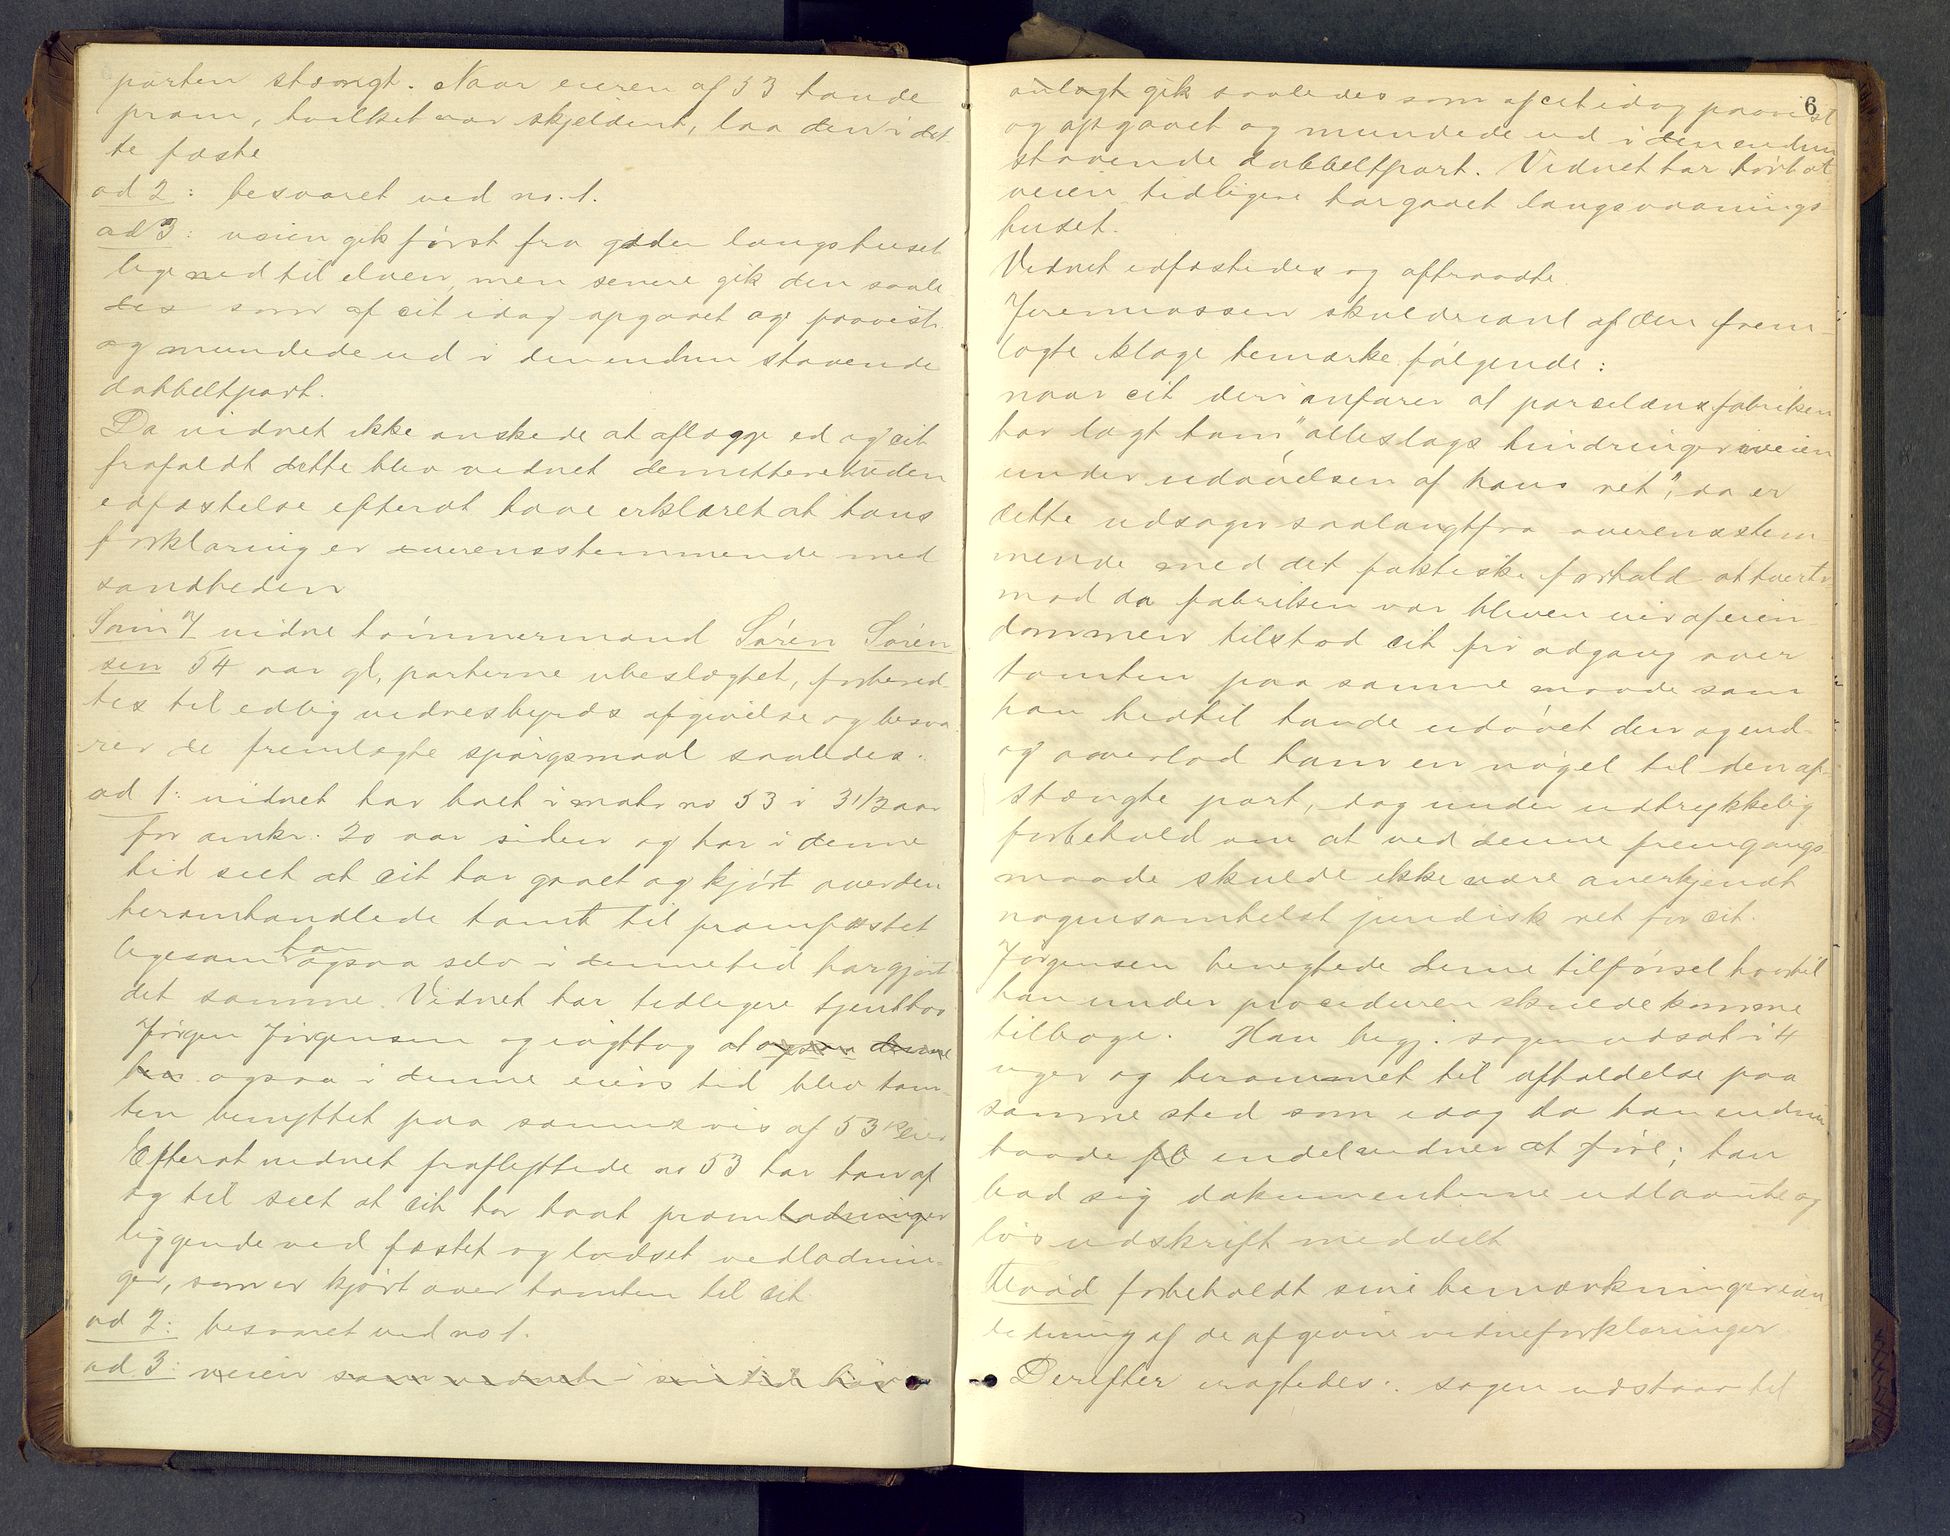 porten stængt. Naar eieren af 53 havde
pram, hvilket var skjeldent, laa den i det-
te fæste
ad 2: besvaret ved no. 1.
ad 3: veien gik först fra gaden langs huset
lige ned til elven, men senere gik den saale
des som af cit idag opgaaet og paavist
og mundede ud i den endnu staaende
dobbeltport.
Da vidnet ikke önskede at aflægge ed og cit
frafaldt dette blev vidnet demitteret uden
edfæstelse efterat have erklæret at hans
forklaring er overensstemmende med
sandheden
Som 7 vidne tömmermand Sören Sören
sen 54 aar gl, parterne ubeslægtet, forbered-
tes til edlig vidnesbyrds afgivelse og besva
rer de fremlagte spörgsmaal saaledes:
ad 1: vidnet har boet i matr no 53 i 3 1/2 aar
for omkr. 20 aar siden og har i denne
tid seet at cit har gaaet og kjört over den
heromhandlede tomt til pramfæstet
ligesom han ogsaa selv i denne tid har gjört
det samme. Vidnet har tidligere tjent hos
Jörgen Jörgensen og iagttog at ogsaa denne
han ogsaa i denne eiers tid blev tom-
ten benyttet paa samme vis af 53's eier
Efterat vidnet fraflyttede no 53 har han af
og til seet at cit har havt pram ladninger
liggende ved fæstet og lodset vedladnin-
ger, som er kjört over tomten til cit
ad 2: besvaret ved no 1.
ad 3: veien som vidnet i sin tid
anlagt gik saaledes som af cit idag paavist
6
og opgaaet og mundede ud i den endnu
staaende dobbeltport. Vidnet har hört at
veien tidligere har gaaet langs vaanings-
huset.
Vidnet edfæstedes og aftraadte.
Jeremiassen skulde i anl af den frem-
lagte klage bemærke fölgende:
naar cit deri anförer at porcelænsfabriken
har lagt ham "alleslags hindringer i veien
under udövelsen af hans ret", da er
dette udsagn saa langtfra overensstem-
mende med det faktiske forhold at tvert
mod da fabriken var bleven eier af eien-
dommen tilstod cit fri adgang over
tomten paa samme maade som
han hidtil havde udövet den og end-
og overlod ham en nögel til den af-
stængte port, dog under udtrykkelig
forbehold om at ved denne fremgangs-
maade skulde ikke være anerkjendt
nogensomhelst juridisk ret for cit.
Jörgensen benegtede denne tilförsel hvortil
han under proceduren skulde komme
tilbage. Han begj. sagen udsat i 4
uger og berammet til afholdelse paa
samme sted som idag da han endnu
havde en del vidner at före; han
bad sig dokumenterne udlaante og
lös udskrift meddelt
forbeholdt sine bemærkninger i an
ledning af de afgivne vidneforklaringer
Derefter eragtedes: sagen udstaar til